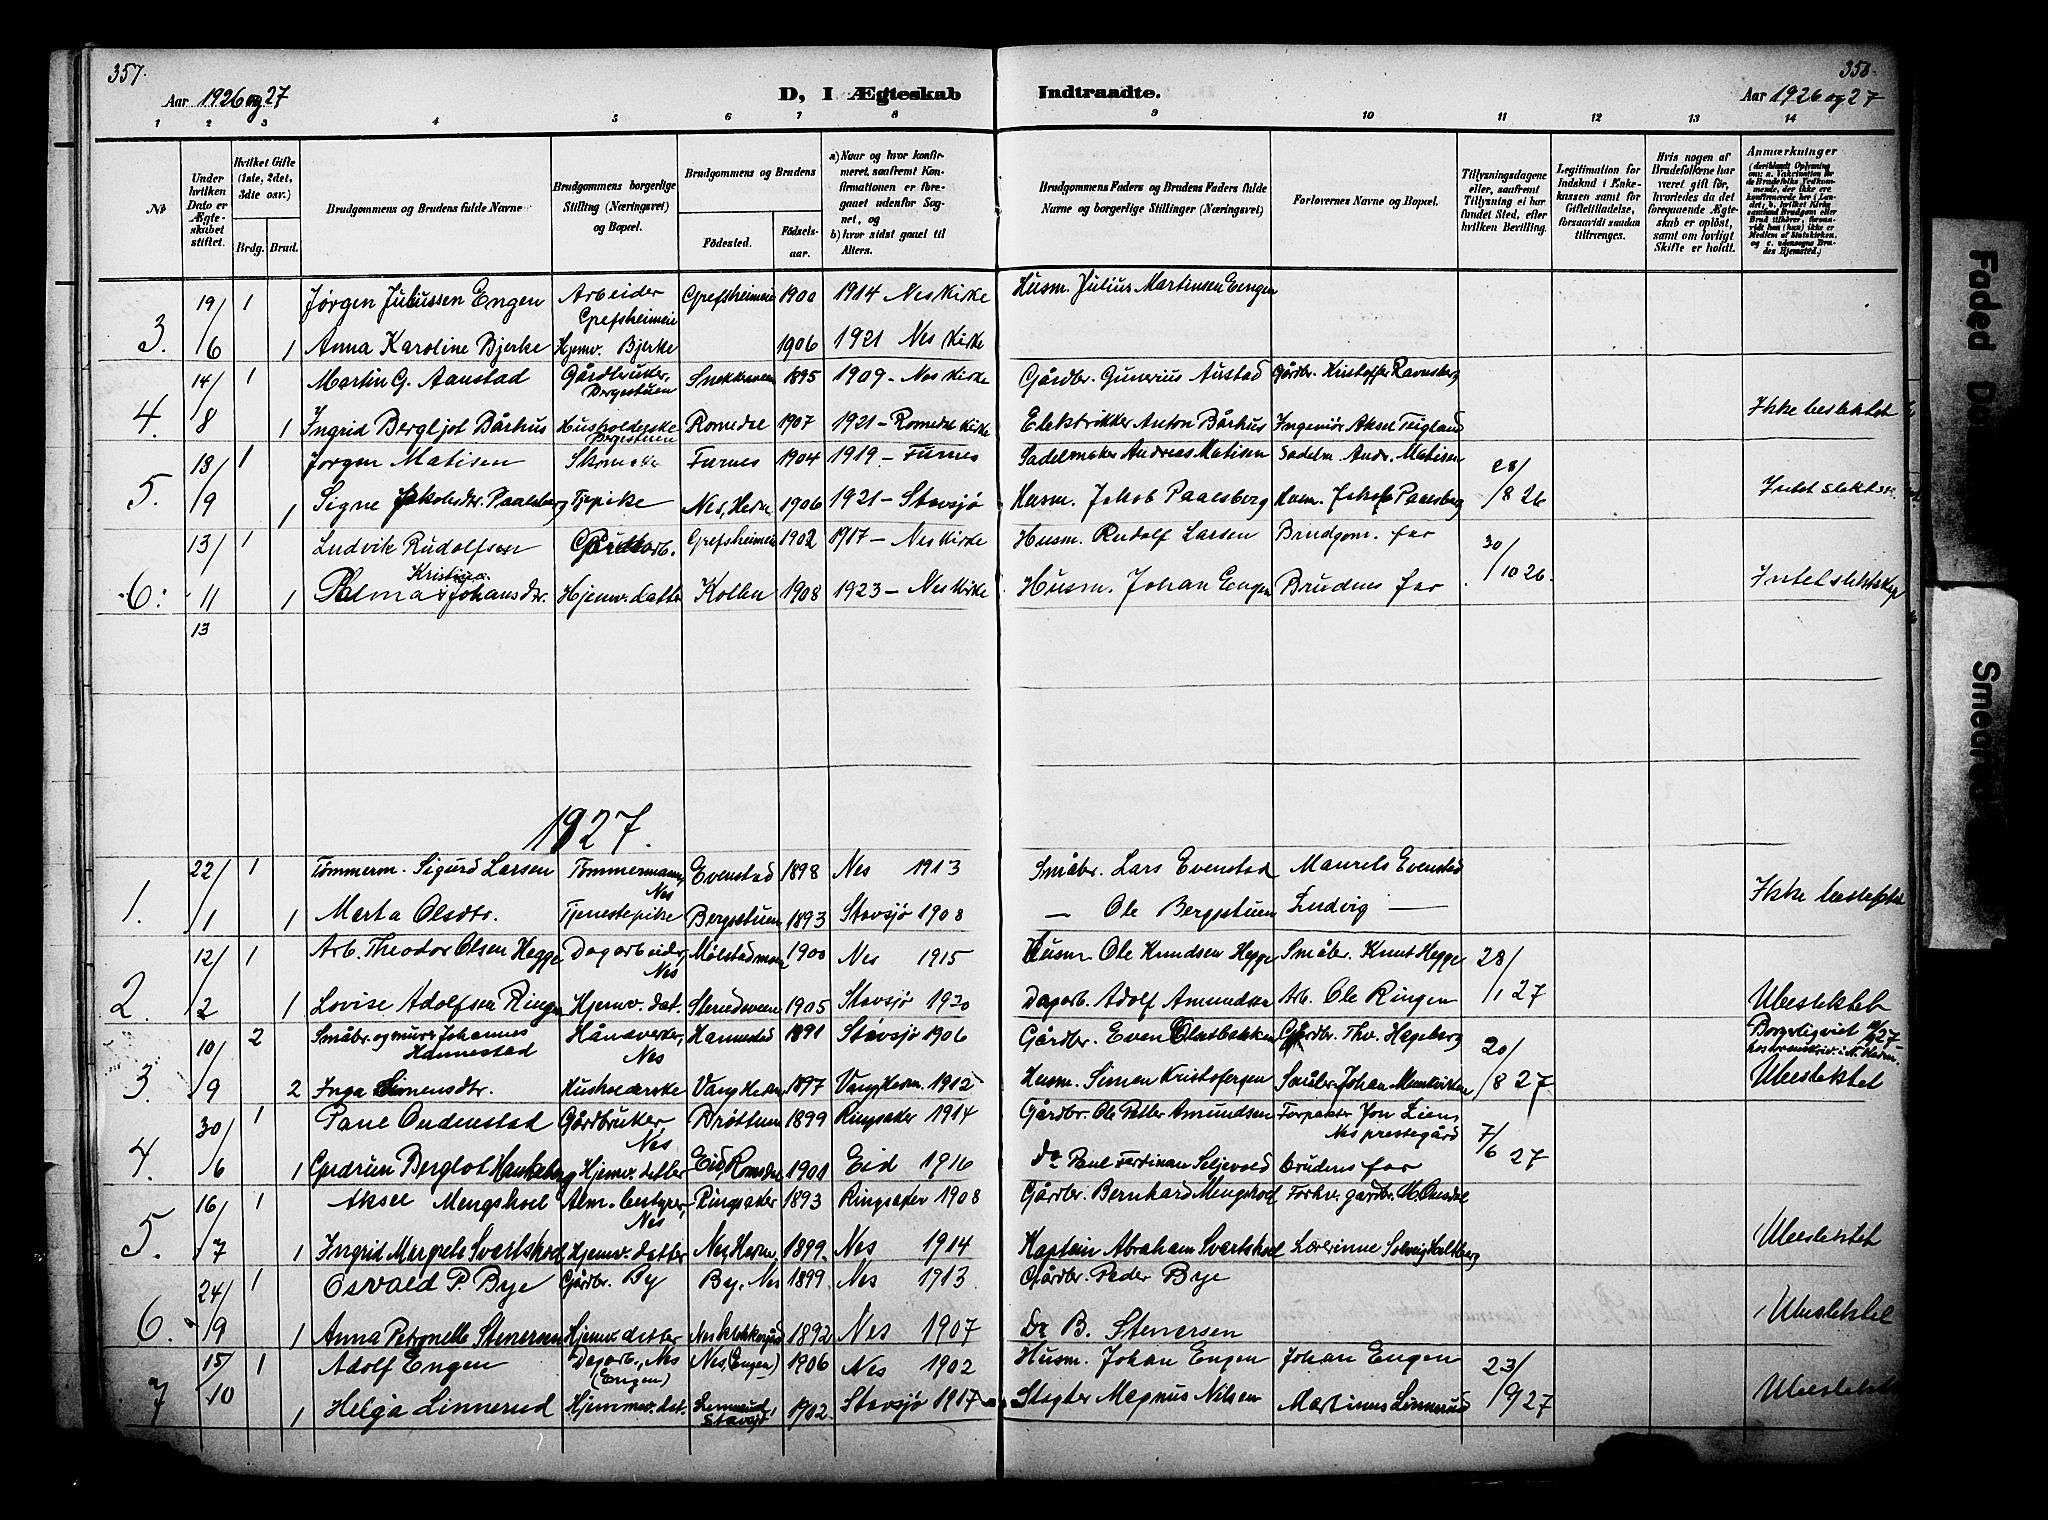 357.
358.
Aar 1926 og 27
D, I Ægteskab Indtraadte.
Aar 1926 og 27
1 2 3 4 5 6 7 8 9 10 11 12 13 14
No
Under hvilken Dato er Ægteskabet stiftet.
Hvilket Gifte (1ste, 2det, 3die osv.)
Brdg. Brud.
Brudgommens og Brudens fulde Navne
Brudgommens borgerlige Stilling (Næringsvei) og Bopæl.
Brudgommens og Brudens
Födested. Födselsaar.
a) Naar og hvor konfirmeret, saafremt Konfirmationen er foregaaet udenfor Sognet, og
b) hvor sidst gaaet til Alters.
Brudgommens Faders og Brudens Faders fulde Navne og borgerlige Stillinger (Næringsvei)
Forlovernes Navne og Bopæl.
Tillysningsdagene eller, saafremt Tillysning ei har fundet Sted, efter hvilken Bevilling.
Legitimation for Indskud i Ænkekassen samt for Giftetilladelse, forsaavidt saadan tiltrænges.
Hvis nogen af Brudefolkene har været gift för, hvorledes da det foregaaende Ægteskab er oplöst, samt om lovligt Skifte er holdt.
Anmærkninger
3. 19/6 1 Jørgen Juliussen Engen Arbeider Grefsheimeie Grefsheimeie 1900 1914 Nes Kirke Husm. Julius Martinsen Engen
1 Anna Karoline Bjerke Hjemv. Bjerke 1906 1921 Nes Kirke
4. 14/8 1 Martin G. Aanstad Gårdbruker, Bergestuen 1895 1909 - Nes Kirke Gårdbr. Gunerius Austad Gårdbr. Kristoffer Ravnsberg
1 Ingrid Bergljot Bårhus Husholderske Bergestuen Romedal 1907 1921 - Romedal Kirke Elektrikker Anton Bårhus Ingeniör Aksel Teigland Ikke beslektet
5. 18/9 1 Jørgen Matisen Furnes 1904 1919 - Furnes Sadelmaker Andreas Matisen Sadelm. Andr. Matisen 28/8 26
1 Signe Jakobsdr. Paalsberg Tj.pike Nes, Hedm 1906 1921 - Stavsjø Husm. Jakob Paalsberg Husm. Jakob Paalsberg Intet slektsk.
6. 13/11 1 Ludvik Rudolfsen Grefsheimeie 1902 1917 - Nes Kirke Husm. Rudolf Larsen Brudgom. far 30/10 26
1 Palma Kristine Johansdr. Hjemv. datter Kollen 1908 1923 - Nes Kirke Husm. Johan Engen Brudens far Intet slektskap
13
1927.
1. 22/1 1 Tømmerm. Sigurd Larsen Tømmermann, Nes Evenstad 1898 Nes 1913 Småbr. Lars Evenstad Maurits Evenstad
1 Marta Olsdtr. Tjenestepike Bergstuen 1893 Stavsjø 1908 — Ole Bergstuen Ludvig — Ikke beslektet
2. 12/2 1 Arb. Theodor Olsen Hegge Dagarbeider, Nes Mølstadmoen 1900 Nes 1915 Husm. Ole Knudsen Hegge Småbr. Knut Hegge 28/1 27
1 Lovise Adolfsen Ringen Hjemv. dat. 1905 Stavsjø 1920 Dagarb. Adolf Amundsen Arb. Ole Ringen Ubeslektet
3. 10/9 2 Småbr. og murer Johannes Hannestad Håndverker, Nes Hannestad 1891 Stavsjø 1906 Gårdbr. Even Gårdbr. Thv. Hageberg 20/8 27 Borgerlig viet
2 Inga Simensdtr. Husholderske Vang Hedm 1897 Vang Hedm. 1912 Husm. Simen Kristofersen Småbr. Johan Ubeslektet
4. 30/6 1 Pane Ondenstad Gårdbruker Nes Brøttum 1899 Ringsaker 1914 Gårdbr. Ole Petter Amundsen Forpakter Jon Lien, Nes prestegård 7/6 27
1 Gudrun Berglot Hjemv. datter Eid, Romsdal 1901 Eid 1916 Do Paul Ferdinan Seljevold brudens far
5. 16/7 1 Aksel Mengshoel Alm. bestyrer, Nes Ringsaker 1893 Ringsaker 1908 Gårdbr. Bernhard Mengshoel Forhv. gårdbr.
1 Ingrid Margrete Svartskod Hjemv. datter Nes, Hedm 1899. Nes 1914 Kaptein Abraham Svartskod Lærerinne Solveig Ubeslektet
6. 24/9 1 Osvald P. Bye Gårdbr. By By, Nes 1899 Nes 1913 Gårdbr. Peder Bye
1 Anna Petronelle Stenersen Hjemv. datter 1892 Nes 1907 Do B. Stenersen Ubeslektet
7 15/10 1 Adolf Engen Dagarb., Nes (Engen) Nes, (Engen) 1906 Nes 1902 Husm. Johan Engen Johan Engen 23/9 27
1 Helga Linnerud Hjemmev. dat. Linnerud, Stavsjø 1902. Stavsjø 1917 Slagter Magnus Nilsen Martinus Linnerud Ubeslektet
Faded
Smeared